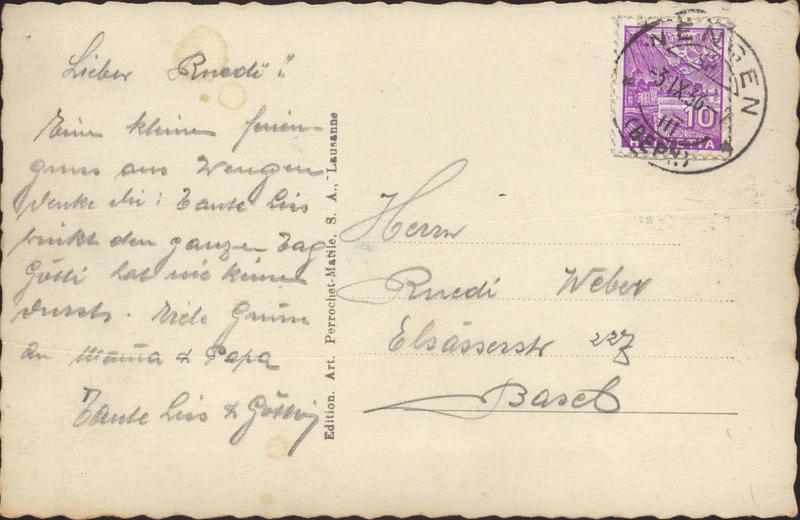 Lieber Ruedi!
Eine kleine Ferien-
gruss aus Wengen
denke dir: Tante Liss
trinkt den ganzen Tag
Götti hat nie keinen
Durst. Viele Grüsse
an Mama & Papa
Tante Liss & Götti
Edition. Art. Perrochet-Matile, S. A., Lausanne
WENGEN
3.IX.36
III
(BERN)
10
HELVETIA
Herrn
Ruedi Weber
Elsässerstr 227
Basel